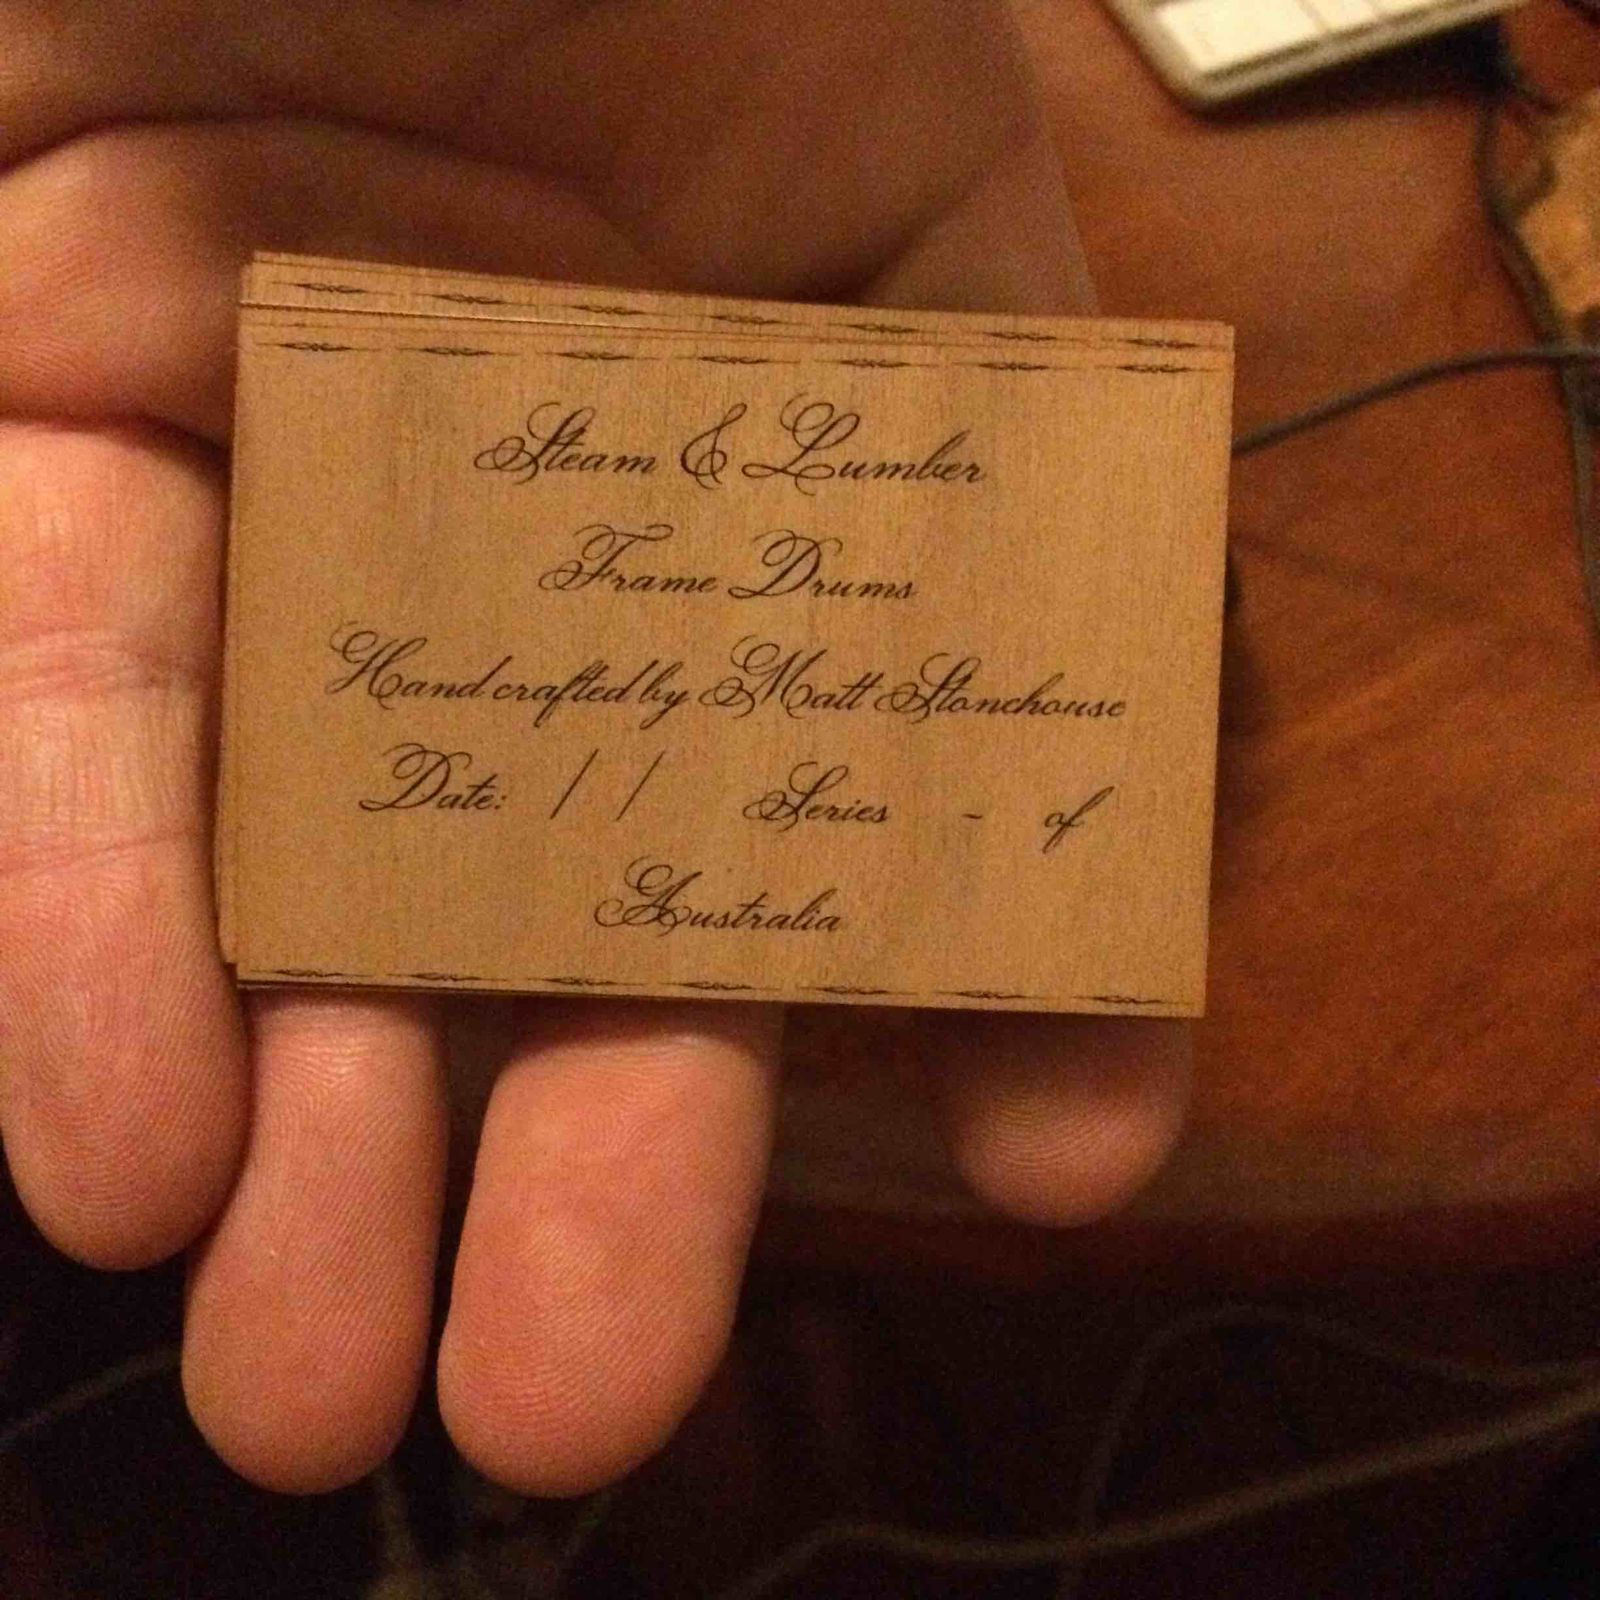 Steam & Lumber
Frame Drums
Handcrafted by Matt Stonehouse
Date: / / Series - of
Australia